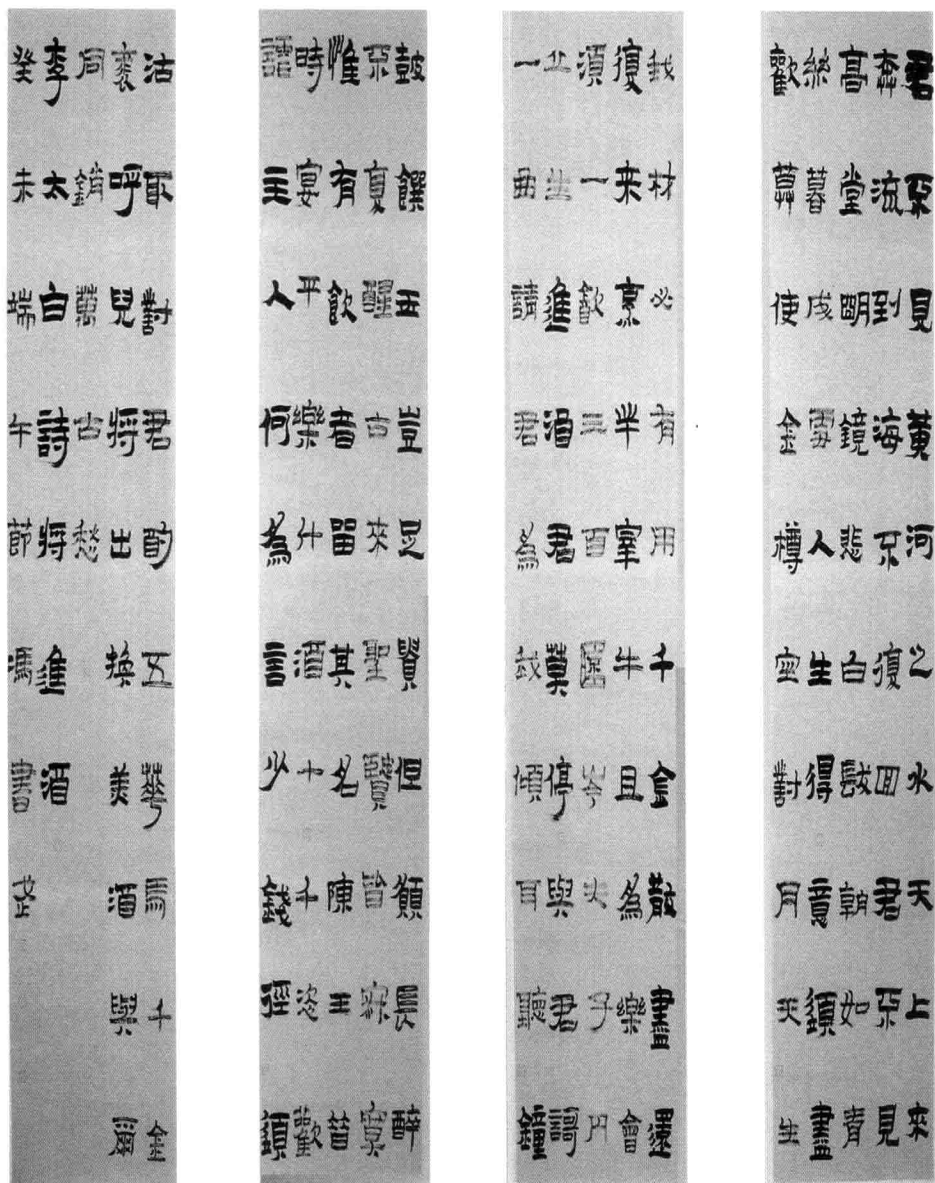 君不見黃河之水天上來
奔流到海不復回君不見
高堂朙鏡悲白髮朝如青
絲暮成雪人生得意須盡
歡莫使金樽空對月天生
我材必有用千金散盡還
復来烹羊宰牛且為樂會
須一飲三百杯岑夫子丹
丘生進酒君莫停與君謌
一曲請君為我傾耳聽鐘
鼓饌玉豈足貴但願長醉
不復醒古來聖賢皆寂寞
惟有飲者留其名陳王昔
時宴平樂什酒十千恣歡
謔主人何為言少錢徑須
沽取對君酌五華馬千金
裘呼兒將出換美酒與爾
同銷萬古愁
李太白詩將進酒
癸未端午節馮書芷